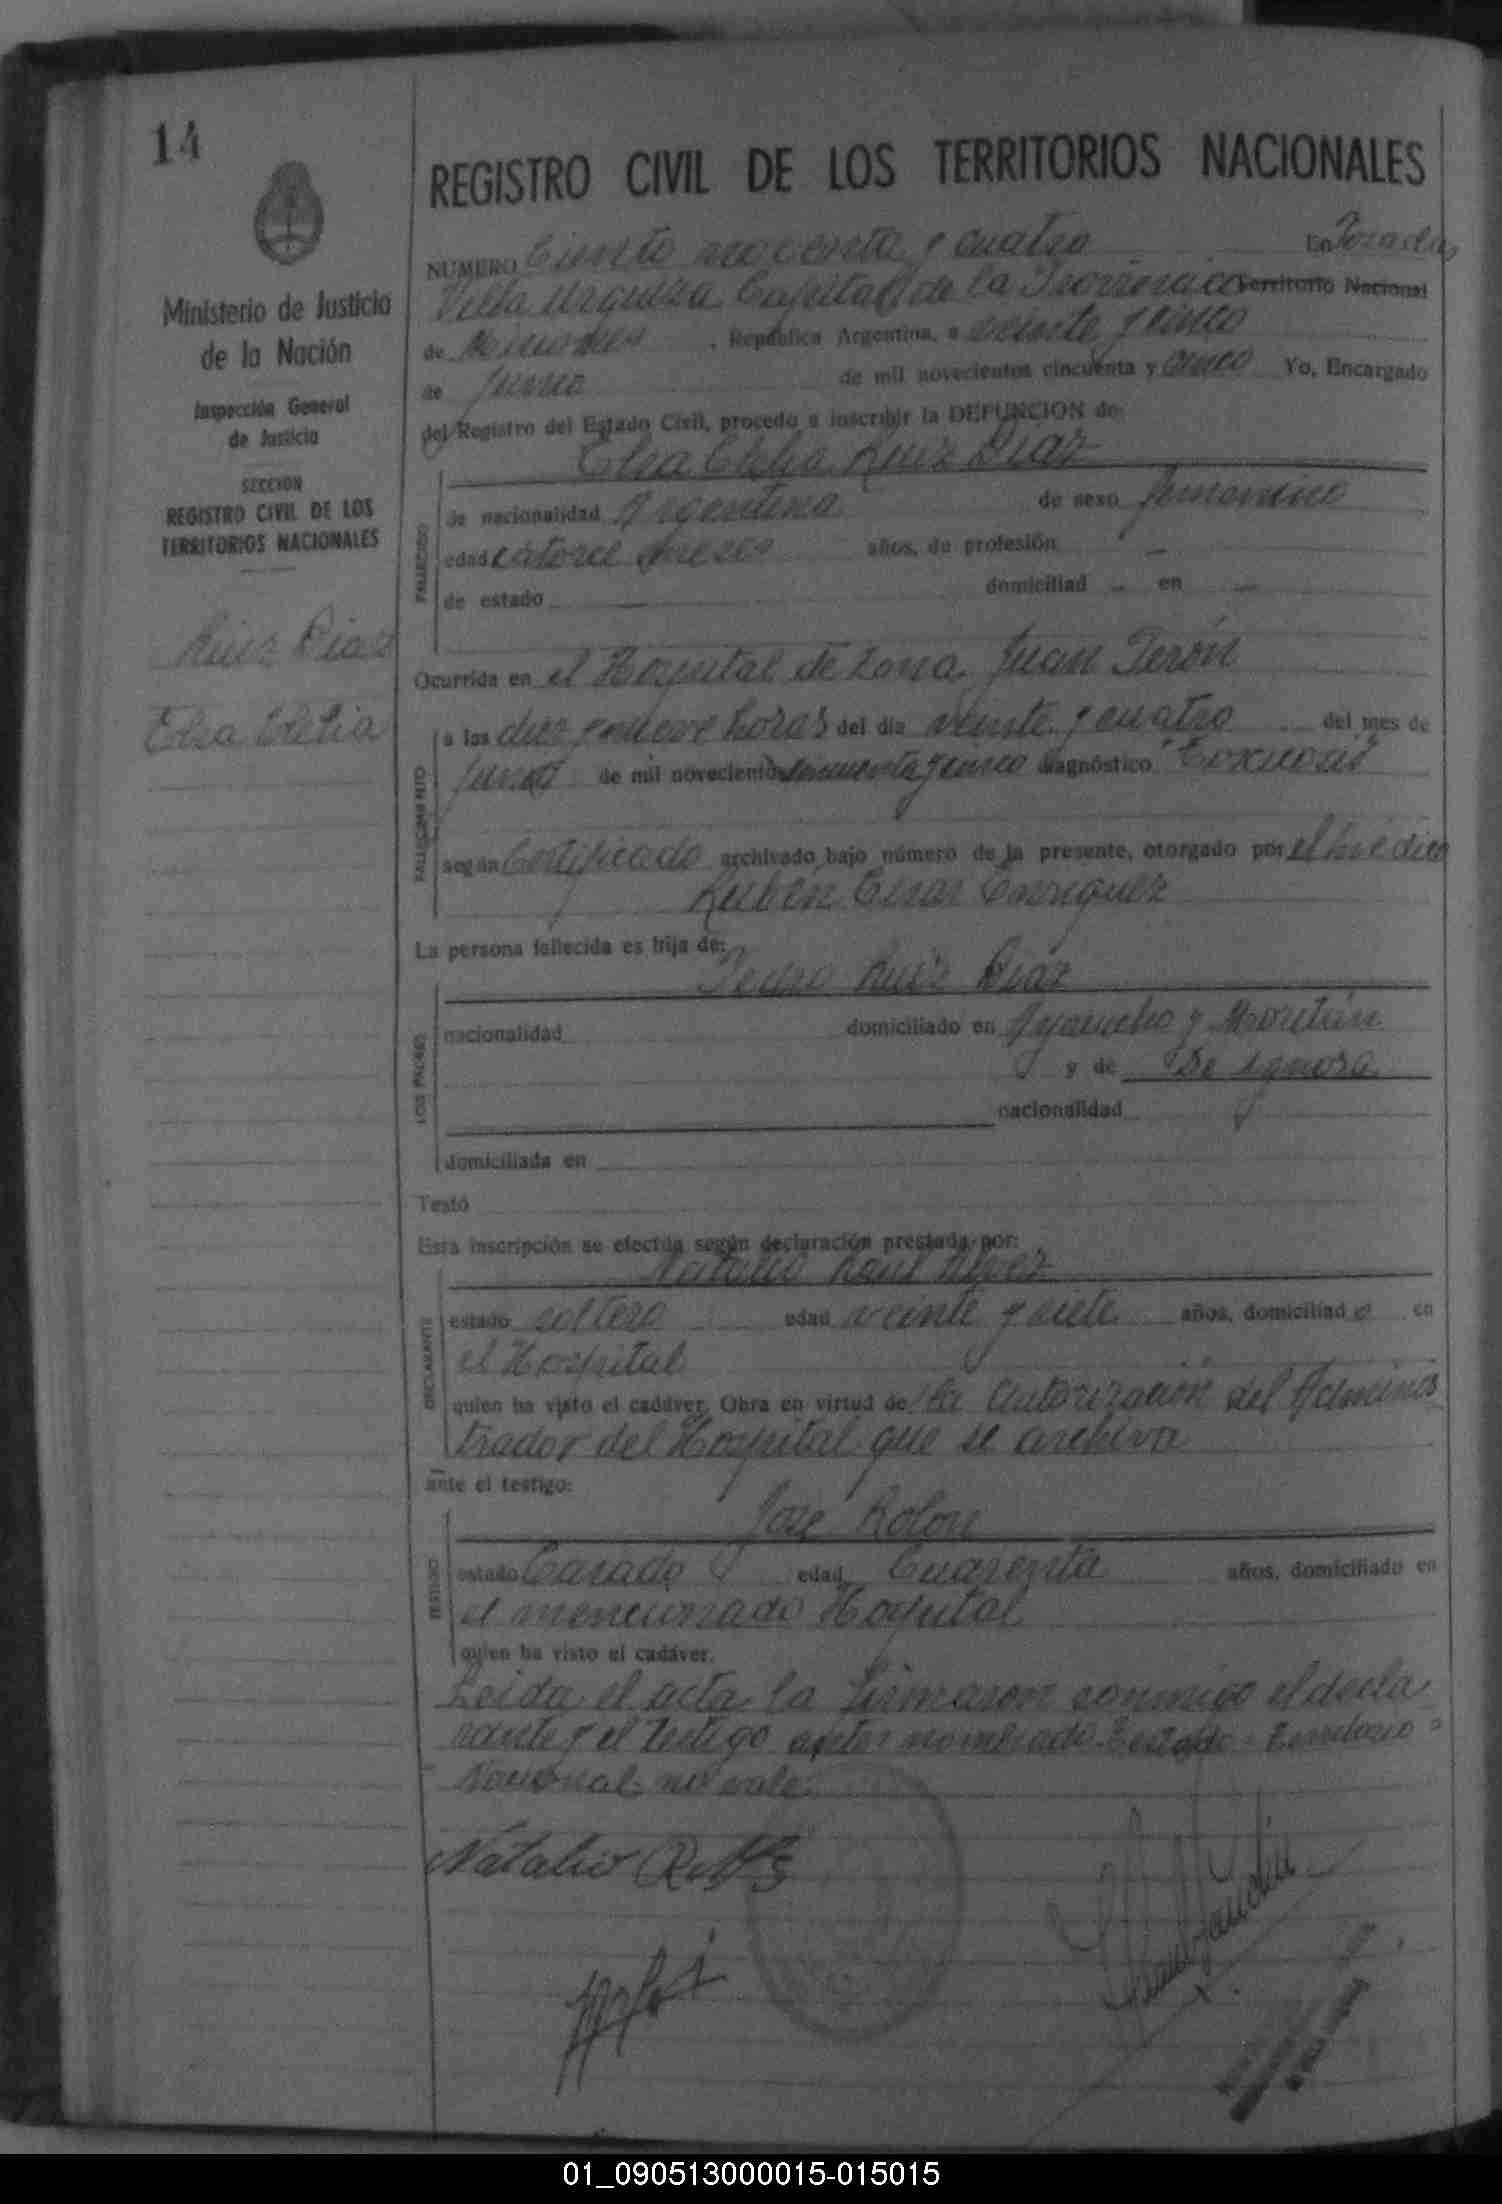 14
REGISTRO CIVIL DE LOS TERRITORIOS NACIONALES
Ministerio de Justicia
de la Nación
Inspección General
de Justicia
SECCION
REGISTRO CIVIL DE LOS
TERRITORIOS NACIONALES
Ruiz Diaz
Elsa Clelia
NUMERO Ciento noventa y cuatro En Posadas
Villa Urquiza Capital de la Provincia Territorio Nacional
de Misiones, República Argentina, a veinte y cinco
de Junio de mil novecientos cincuenta y cinco Yo, Encargado
del Registro del Estado Civil, procedo a inscribir la DEFUNCION de:
Elsa Clelia Ruiz Diaz
FALLECIDO
de nacionalidad Argentina de sexo femenino
edad catorce meses años, de profesión —
de estado — domiciliad – en —
Ocurrida en el Hospital de Zona Juan Perón
FALLECIMIENTO
a las diez y nueve horas del día veinte y cuatro del mes de
Junio de mil novecientos cincuenta y cinco diagnóstico "Toxicosis"
según Certificado archivado bajo número de la presente, otorgado por el médico
Rubén Cesar Enriquez
La persona fallecida es hija de:
Pedro Ruiz Diaz
LOS PADRES
nacionalidad domiciliado en Ayacucho y
y de Se ignora
nacionalidad
domiciliada en
Testó
Esta inscripción se efectúa según declaración prestada por:
Natalio Raul
DECLARANTE
estado soltero edad veinte y siete años, domiciliad o en
el Hospital
quien ha visto el cadáver. Obra en virtud de la autorización del Adminis
trador del Hospital que se archiva
ante el testigo:
Jose Rolon
TESTIGO
estado Casado edad Cuarenta años, domiciliado en
el mencionado Hospital
quien ha visto el cadáver.
Leida el acta la firmaron conmigo el decla
rante y el testigo antes nombrado. Testado: Territorio
Nacional: no vale
Natalio R.
01_090513000015-015015